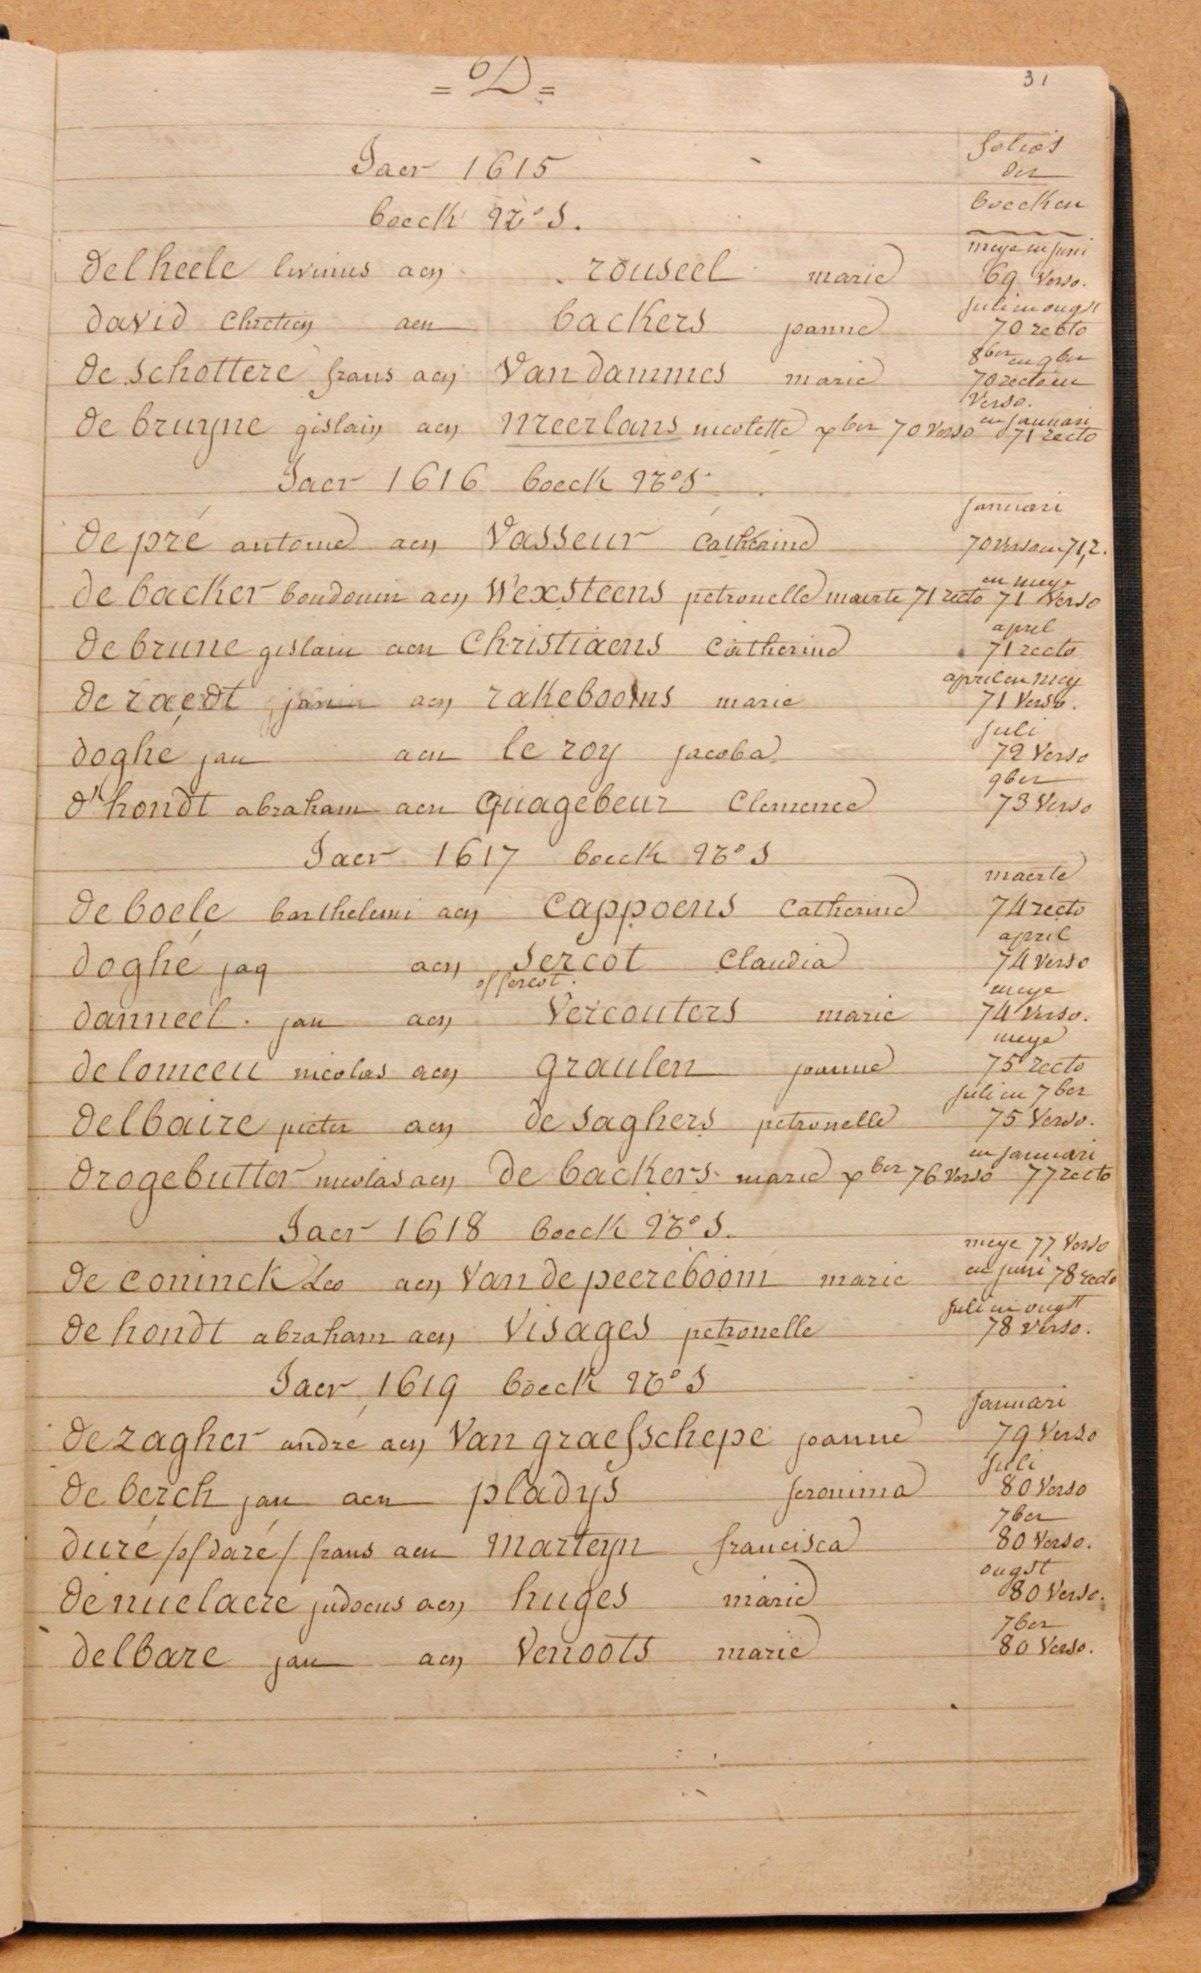 = D =
31
Jaer 1615
folio's
der
boecken
boeck No 5.
meye en juni
delheele livinius aen rouseel marie 69 verso.
juli en ougst
david chretien aen backers joanne 70 recto
8ber en 9ber
de schottere frans aen van dammes marie 70 recto en
verso.
en januari
de bruyne gislain aen meerlans nicolette xber 70 verso 71 recto
Jaer 1616 boeck No 5
januari
de pré antoine aen vasseur catherine 70 verso en 71,2.
en meye
de backer boudouin aen wexsteens petronelle maerte 71 recto 71 verso
april
de brune gislain aen christiaens catherine 71 recto
april en mey
de raedt aen rakebooms marie 71 verso.
juli
doghé jan aen le roy jacoba 72 verso
9ber
d'hondt abraham aen quagebeur clemence 73 verso
Jaer 1617 boeck No 5
maerte
de boele barthelemi aen cappoens catherine 74 recto
april
doghé jaq aen sercot claudia 74 verso
of fercot.
meye
danneel. jan aen vercouters marie 74 verso.
meye
delomceu nicolas aen graulen joanne 75 recto
juli en 7ber
delbaire pieter aen de saghers petronelle 75 verso.
en januari
drogebutter nicolas aen de backers marie xber 76 verso 77 recto
Jaer 1618 boeck No 5.
meye 77 verso
de coninck Leo aen van de peereboom marie en juni 78 recto
juli en ougst
de hondt abraham aen visages petronelle 78 verso.
Jaer 1619 boeck No 5
januari
de zagher andré aen van graefschepe joanne 79 verso
juli
de berch jan aen pladys jeronima 80 verso
7ber
duré /of daré/ frans aen marteyn francisca 80 verso.
ougst
de nuelaere judocus aen huges marie 80 verso.
7ber
delbare jan aen venoots marie 80 verso.